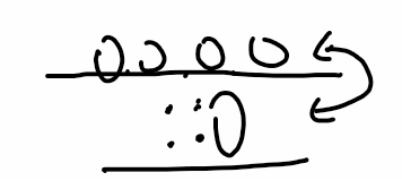 0.0.00
::0